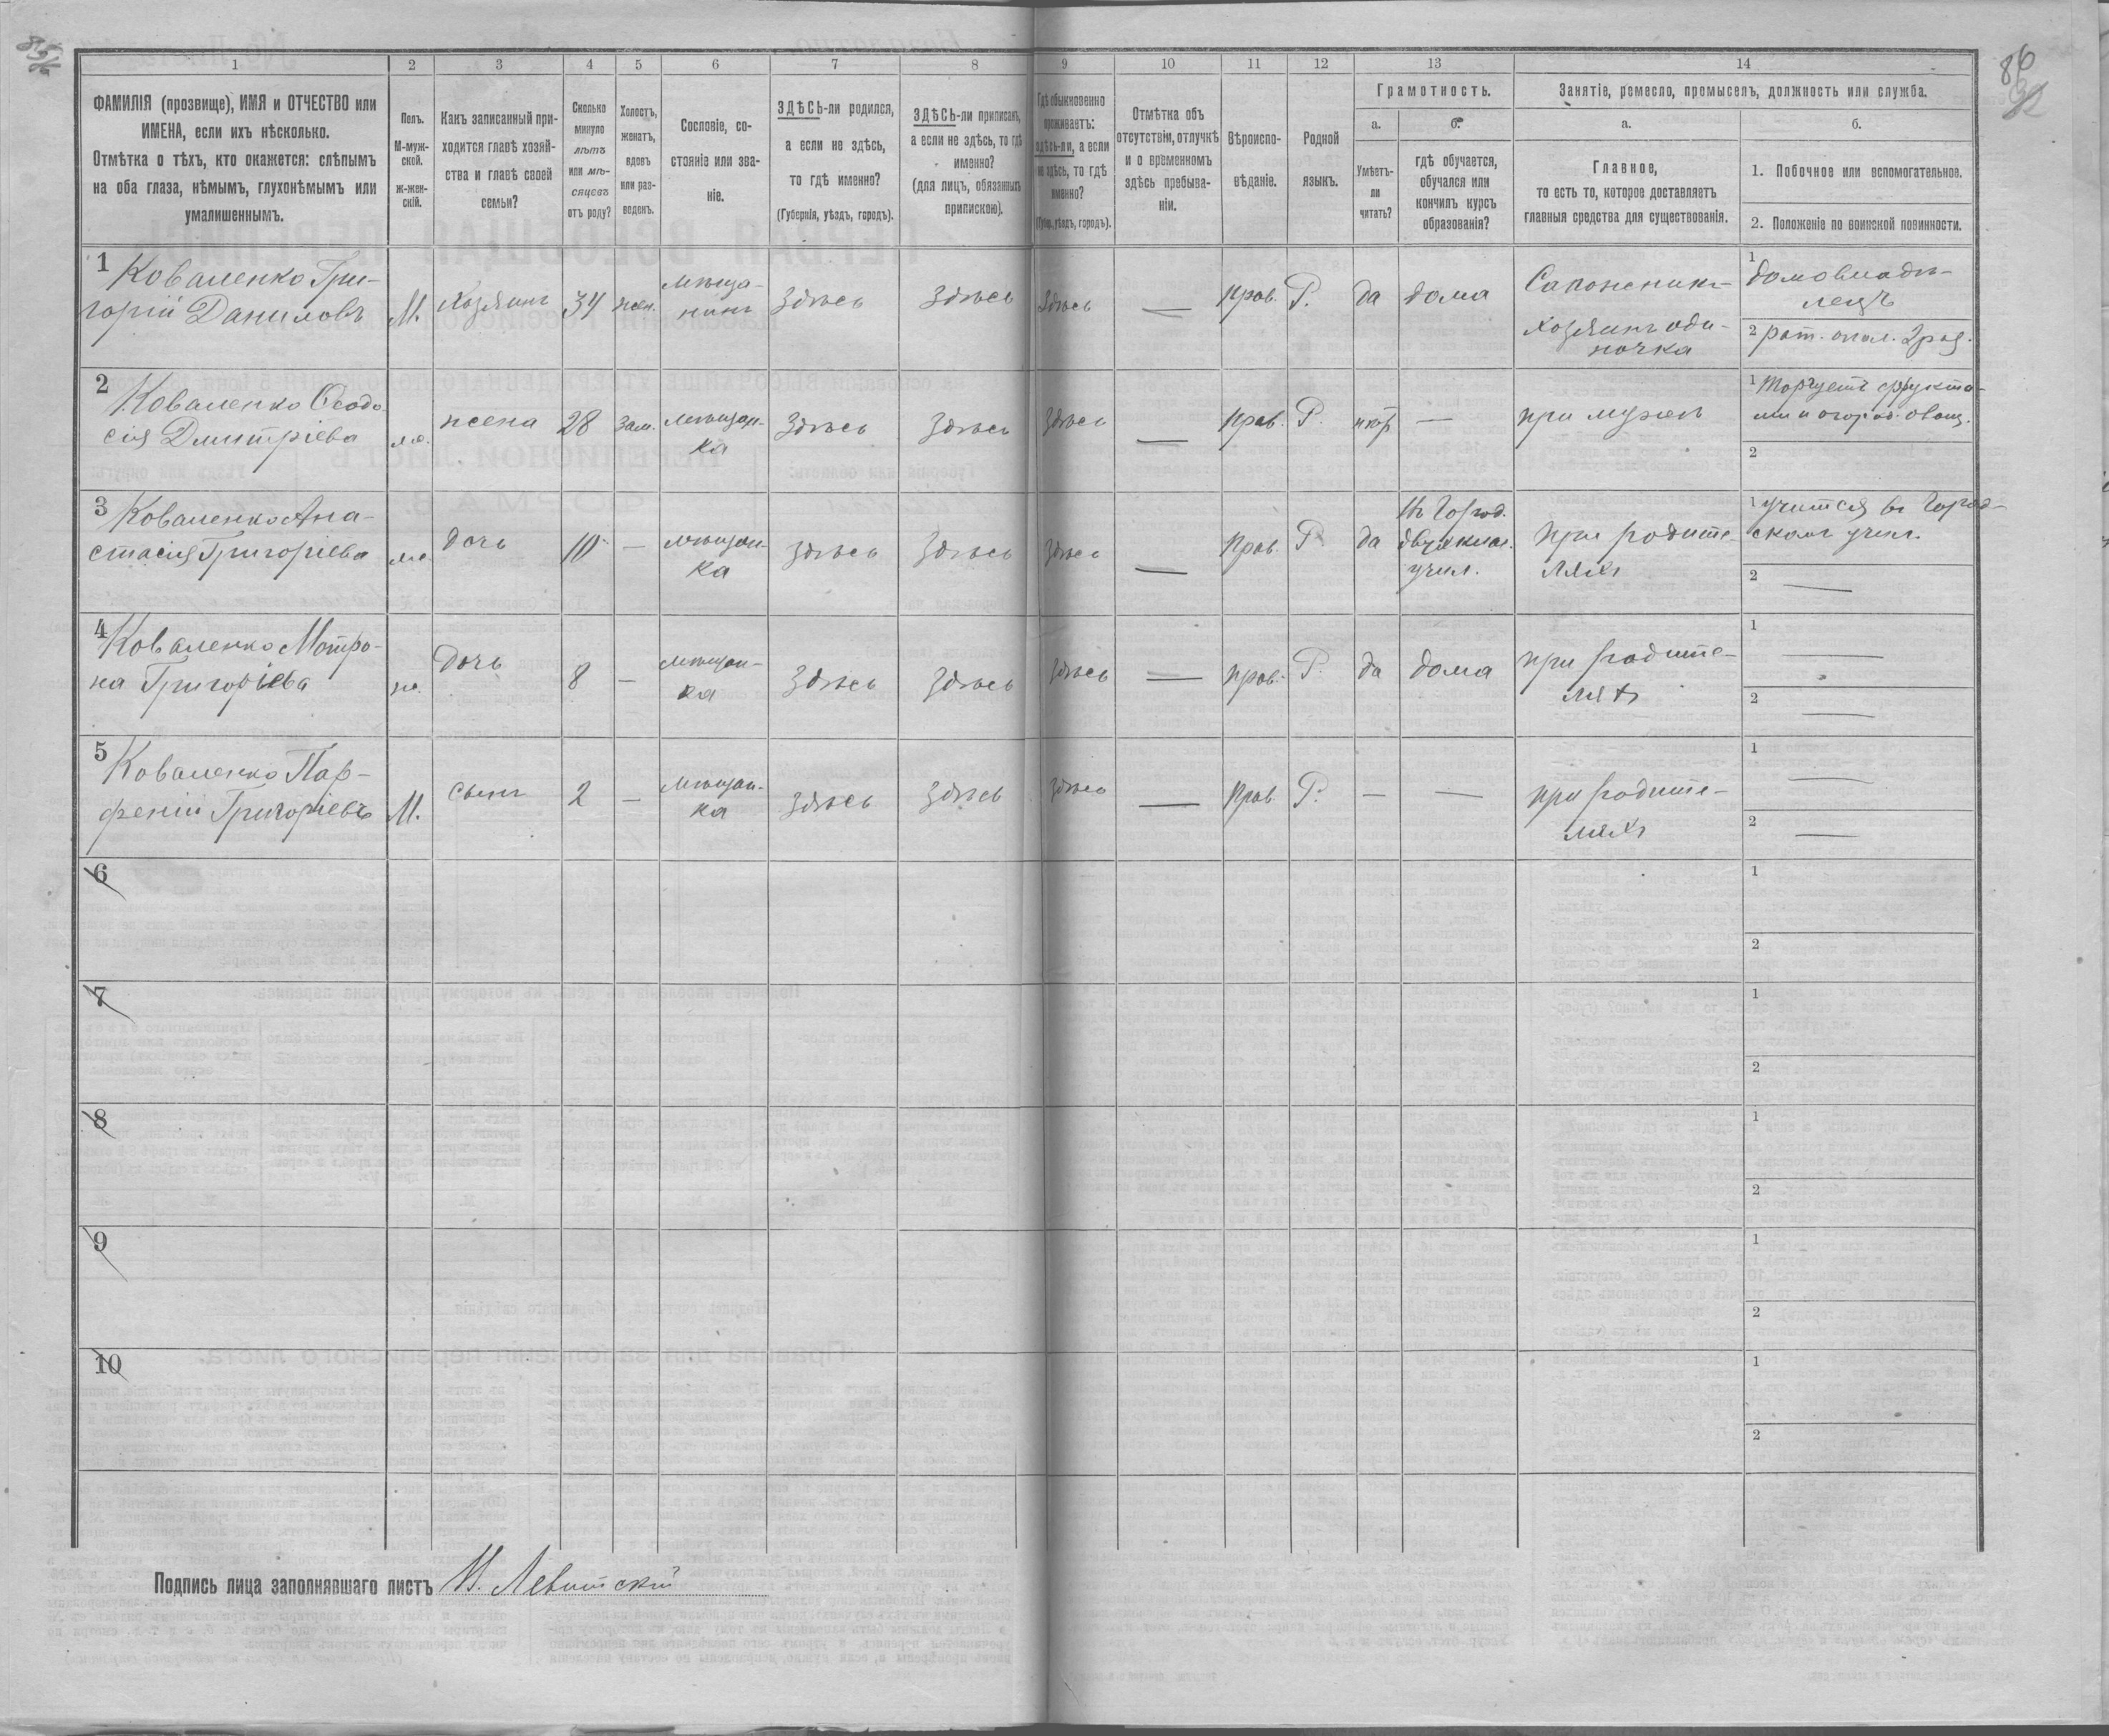 86
1 2 3 4 5 6 7 8 9 10 11 12 13 14
ФАМИЛІЯ (прозвище), ИМЯ и ОТЧЕСТВО или
ИМЕНА, если ихъ нѣсколько.
Отмѣтка о тѣхъ, кто окажется: слѣпымъ
на оба глаза, нѣмымъ, глухонѣмымъ или
умалишеннымъ.
Полъ.
М-муж-
ской.
ж-жен-
скій.
Какъ записанный при-
ходится главѣ хозяй-
ства и главѣ своей
семьи?
Сколько
минуло
лѣтъ
или мѣ-
сяцевъ
отъ роду?
Холостъ,
женатъ,
вдовъ
или раз-
веденъ.
Сословіе, со-
стояніе или зва-
ніе.
ЗДѢСЬ-ли родился,
а если не здѣсь,
то гдѣ именно?
(Губернія, уѣздъ, городъ).
ЗДѢСЬ-ли приписанъ,
а если не здѣсь, то гдѣ
именно?
(для лицъ, обязанныхъ
припискою).
Гдѣ обыкновенно
проживаетъ:
здѣсь-ли, а если
не здѣсь, то гдѣ
именно?
(Губер., уѣздъ, городъ).
Отмѣтка объ
отсутствіи, отлучкѣ
и о временномъ
здѣсь пребыва-
ніи.
Вѣроиспо-
вѣданіе.
Родной
языкъ.
Грамотность.
а.
Умѣетъ-
ли
читать?
б.
гдѣ обучается,
обучался или
кончилъ курсъ
образованія?
Занятіе, ремесло, промыселъ, должность или служба.
а.
Главное,
то есть то, которое доставляетъ
главныя средства для существованія.
б.
1. Побочное или вспомогательное.
2. Положеніе по воинской повинности.
1 Коваленко Гри-
горій Даниловъ
М.
Хозяинъ
34
жен.
мѣща-
нинъ
здѣсь
здѣсь
здѣсь
—
Прав.
Р.
да
дома
Сапожникъ
хозяинъ оди-
ночка
1 домовладѣ-
лецъ
2 рат. опол. 2 раз.
2 Коваленко Ѳеодо-
сія Дмитріева
ж.
жена
28
зам.
мѣщан-
ка
здѣсь
здѣсь
здѣсь
—
Прав.
Р.
нѣт
—
при мужѣ
1 торгуетъ фрукта-
ми и огород. овощ.
2
3 Коваленко Ана-
стасія Григоріева
ж.
дочь
10
—
мѣщан-
ка
здѣсь
здѣсь
здѣсь
—
Прав.
Р
да
Въ город.
двухклас.
учил.
при родите-
ляхъ
1 учится въ город-
скомъ учил.
2 —
4 Коваленко Мотро-
на Григоріева
ж.
дочь
8
—
мѣщан-
ка
здѣсь
здѣсь
здѣсь
—
прав.
Р.
да
дома
при родите-
ляхъ
1 —
2 —
5 Коваленко Пар-
феній Григоріевъ
М.
сынъ
2
—
мѣщан-
ка
здѣсь
здѣсь
здѣсь
—
Прав.
Р.
—
—
при родите-
ляхъ
1 —
2 —
6
1
2
7
1
2
8
1
2
9
1
2
10
1
2
Подпись лица заполнявшаго листъ Н. Левитскій